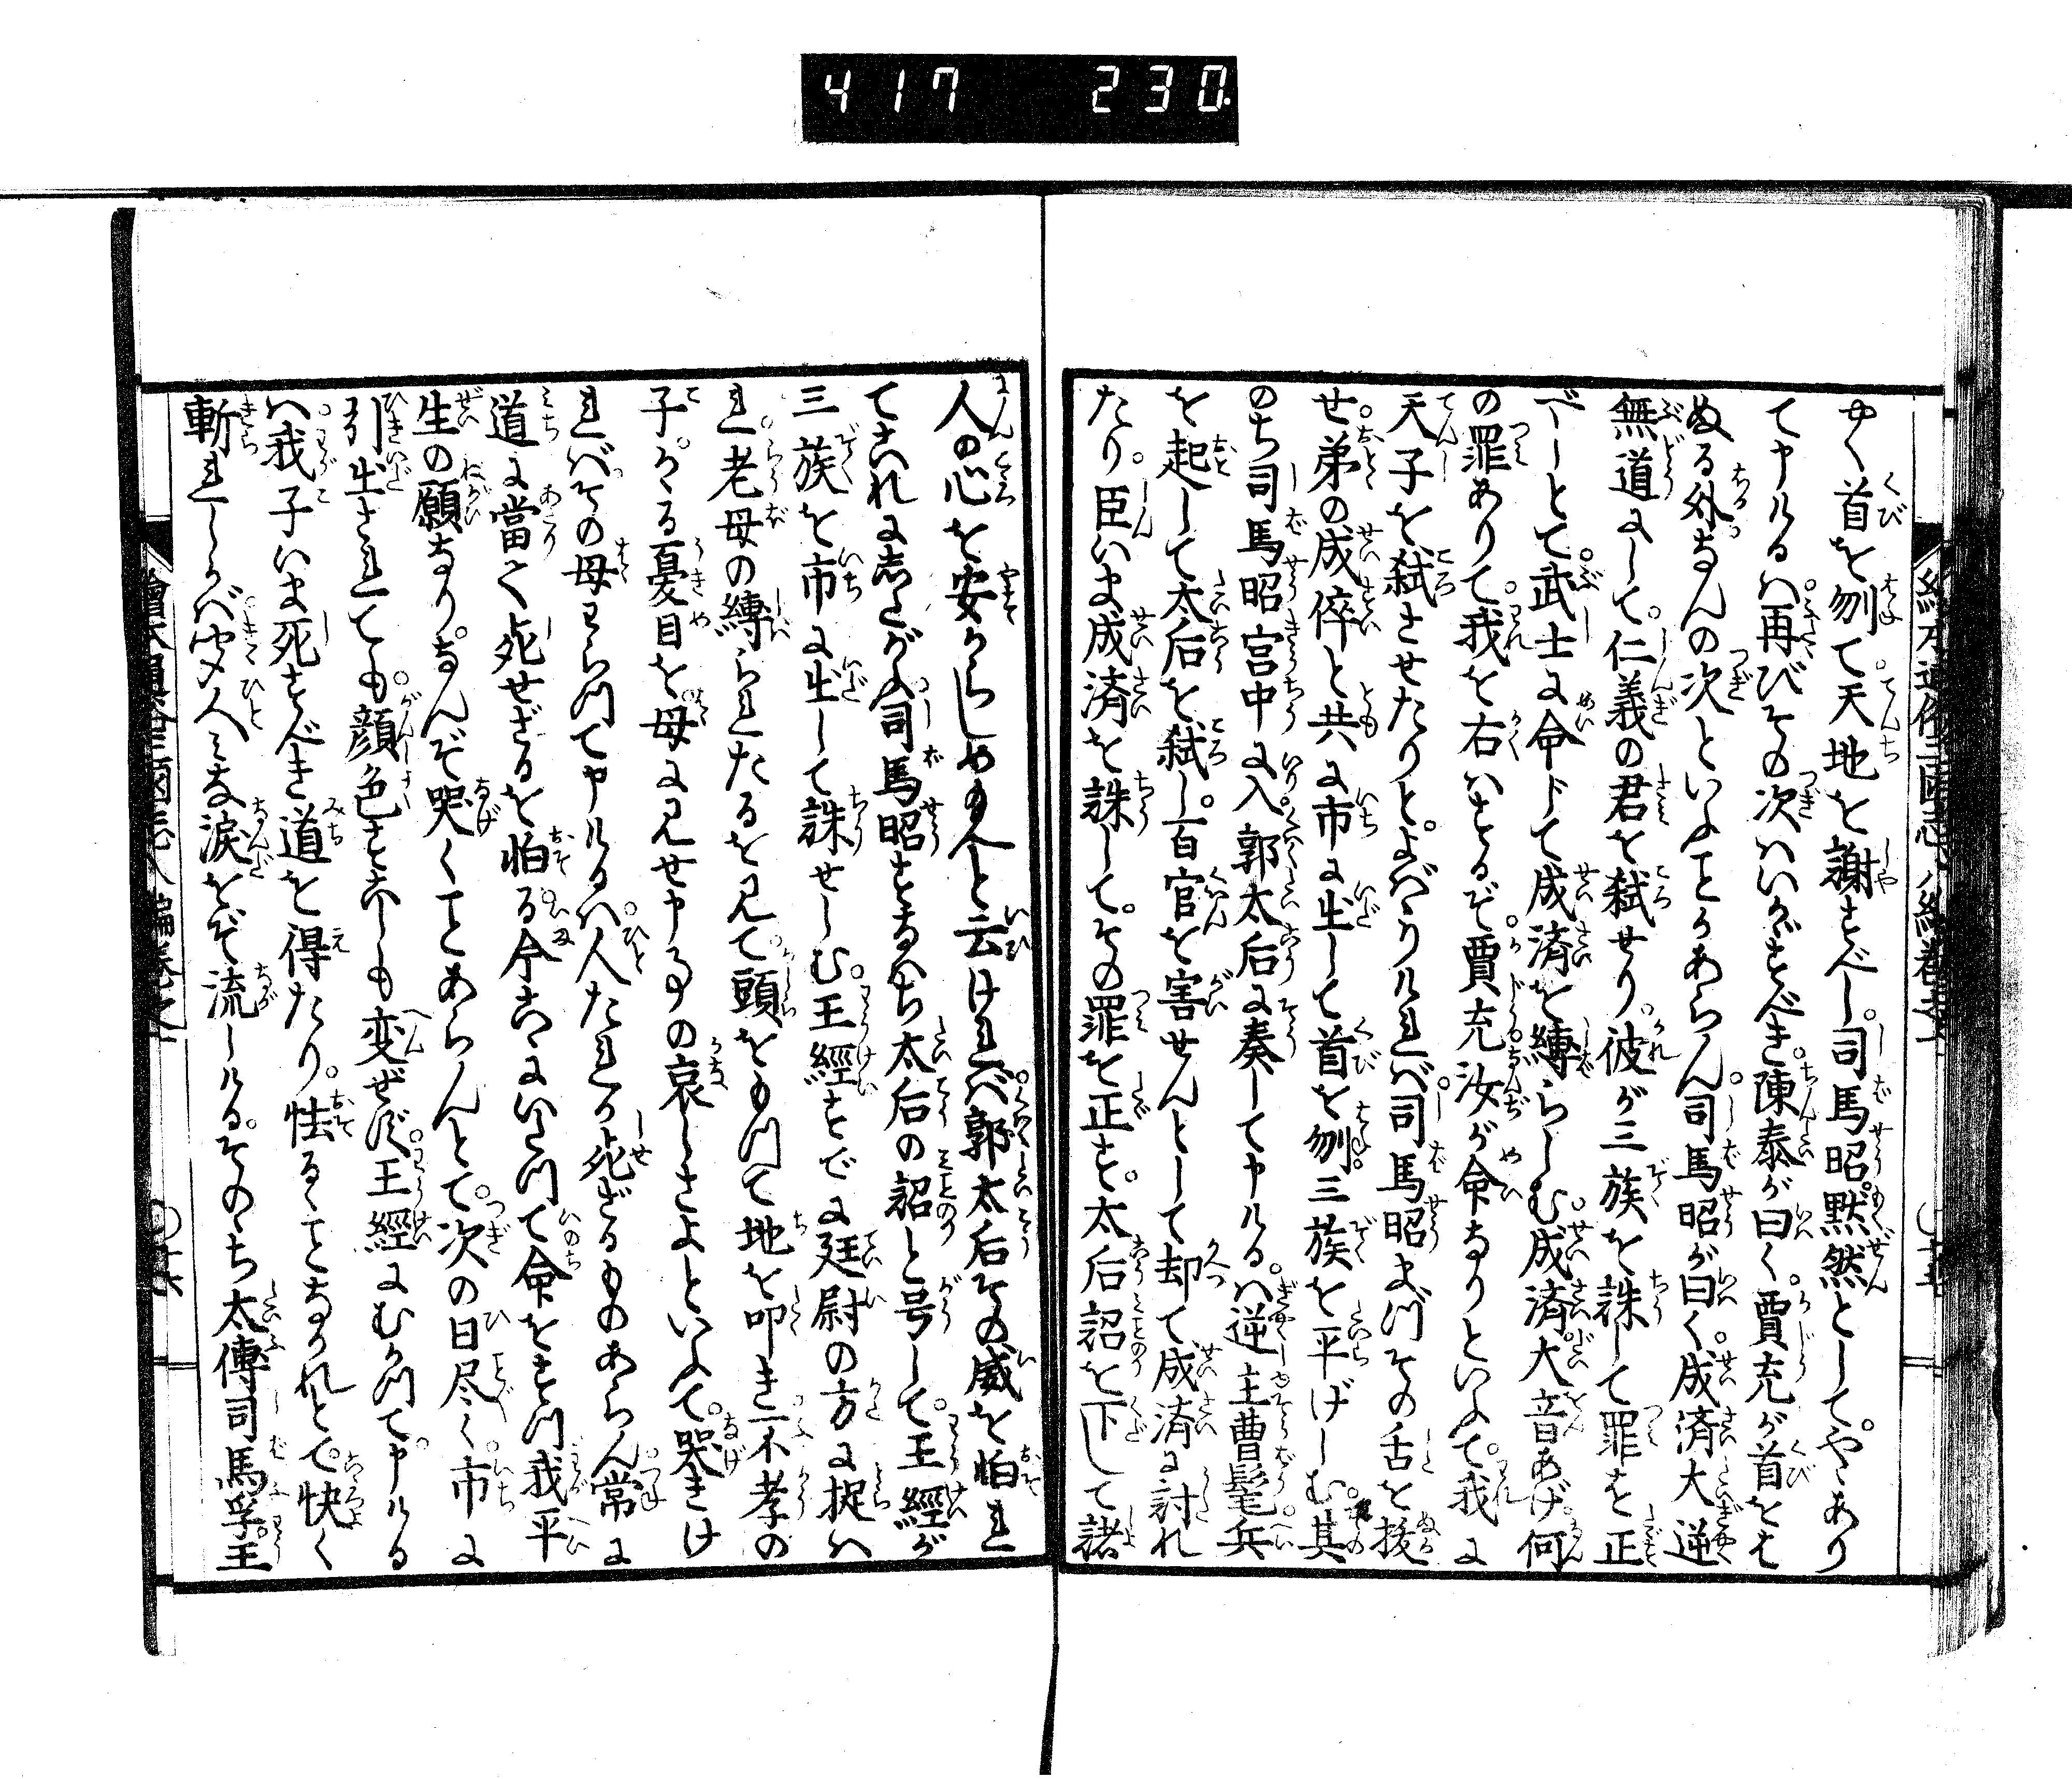 417 230
やく首を刎て天地を謝すべし。司馬昭。黙然として。やゝあり
て申けるハ。再びその次ハいかゞすべき。陳泰が曰く。賈充が首をは
ぬる外なんの次といふことかあらん。司馬昭が曰く。成済大逆
無道にして。仁義の君を弑せり。彼が三族を誅して罪を正
べしとて。武士に命じて成済を縛らしむ。成済。大音あげ。何
の罪ありて。我を右ハするぞ。賈充。汝が命なりといふて。我に
天子を弑させたりと。よばゝりければ。司馬昭まづその舌を抜
せ。弟の成倅と共に市に出して首を刎。三族を平げしむ。其
のち司馬昭宮中に入。郭太后に奏して申ける。ハ逆主曹髦。兵
を起して太后を弑し。百官を害せんとして却て成済に討れ
たり。臣いま成済を誅して。その罪を正す。太后詔を下して諸
人の心を安からしめ給へと云ければ。郭太后その威を怕れ
てこれにしたがふ。司馬昭すなハち太后の詔と号して。王經が
三族を市に出して誅せしむ。王經すでに廷尉の方に捉ハ
れ。老母の縛られたるを見て。頭をもつて地を叩き。不孝の
子。かゝる憂目を。母に見せ申事の哀しさよといふて。哭きけ
れば。その母わらつて申けるハ。人たれか死ざるものあらん。常に
道に當て死せざるを怕る。今こゝにいたつて命をすつ。我平
生の願なり。なんぞ哭くことあらんとて。次の日尽く。市に
引出されても。顔色すこしも変ぜず。王經にむかつて。申ける
ハ。我子いま死すべき道を得たり。怯るゝことなかれとて。快く
斬れしかば。聞人ミな涙をぞ流しける。そのゝち太傅司馬孚。王